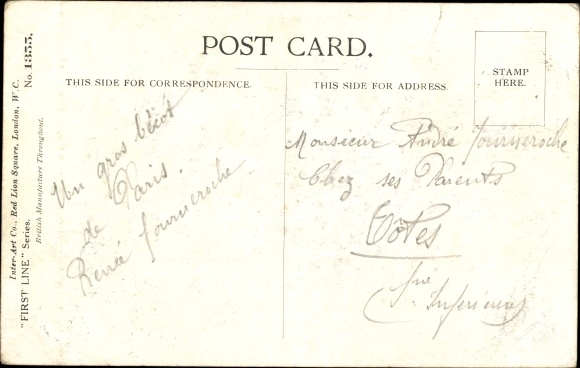 POST CARD.
THIS SIDE FOR CORRESPONDENCE.
THIS SIDE FOR ADDRESS.
STAMP
HERE.
Un gros bécot
de Paris.
Renée Fourneroche
Monsieur André Fourneroche
Chez ses Parents
Tôtes
(Sne Inférieure)
Inter-Art Co., Red Lion Square, London, W.C.
"FIRST LINE" Series. No. 1355.
British Manufacture Throughout.